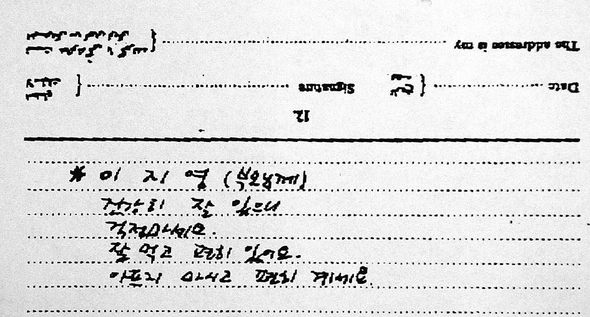 The addressee is my
Date
Signature
12
* 이 지 영 (부모님께)
건강히 잘 있으니
걱정마세요.
잘 먹고 편히 있어요.
아프지 마시고 편히 계세요